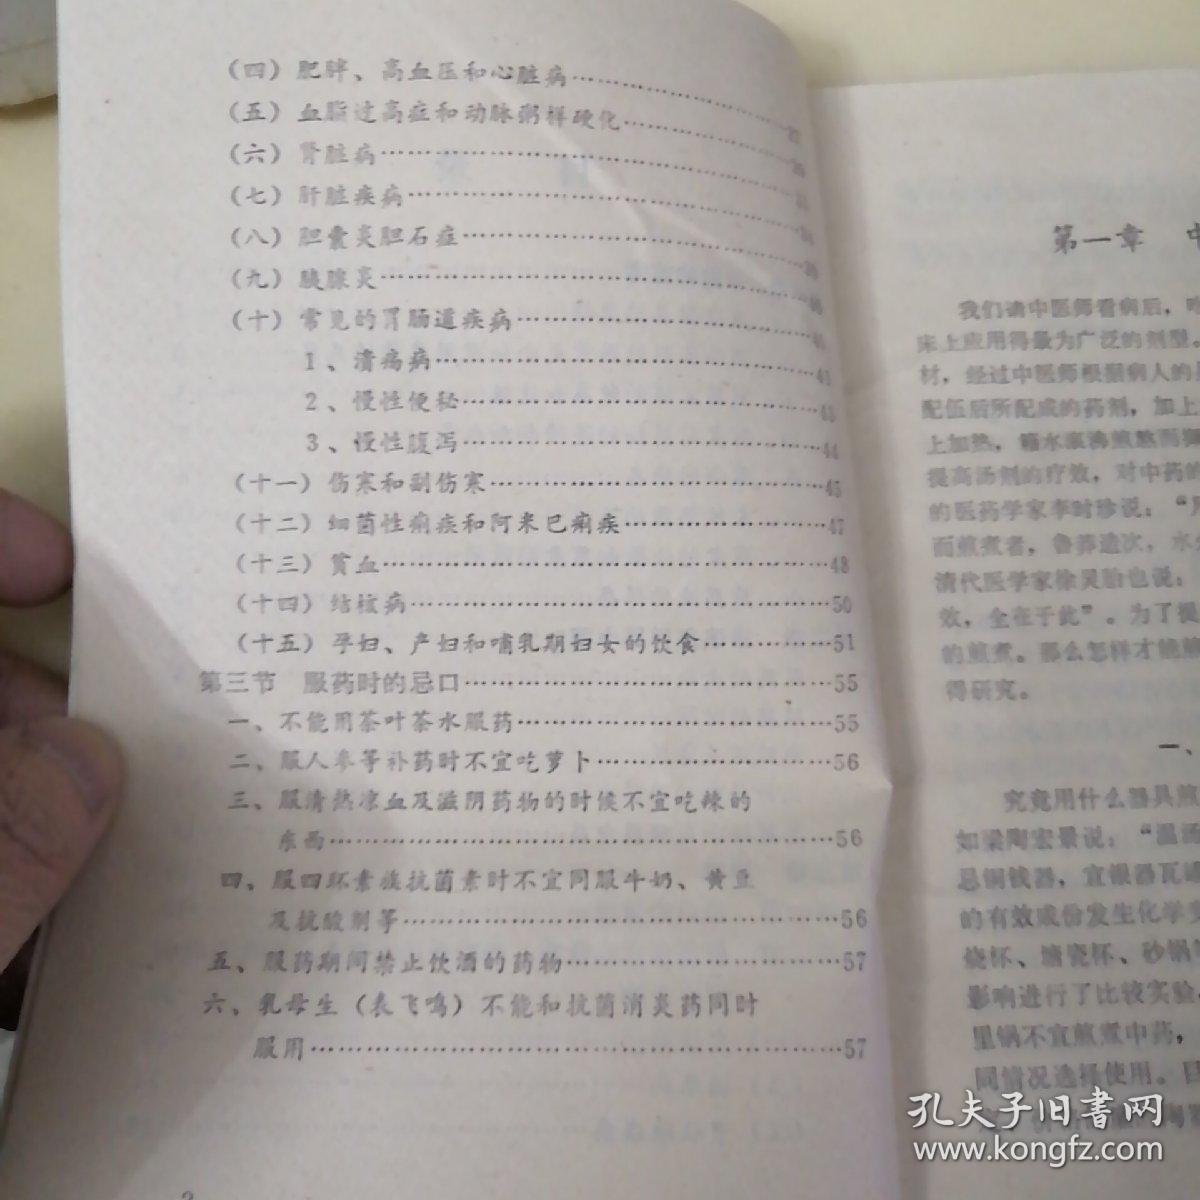 （四）肥胖、高血压和心脏病……………27
（五）血脂过高症和动脉粥样硬化……………
（六）肾脏病……………
（七）肝脏疾病……………
（八）胆囊炎胆石症……………
（九）胰腺炎……………40
（十）常见的胃肠道疾病……………
1、溃疡病……………41
2、慢性便秘……………43
3、慢性腹泻……………44
（十一）伤寒和副伤寒……………45
（十二）细菌性痢疾和阿米巴痢疾……………47
（十三）贫血……………48
（十四）结核病……………50
（十五）孕妇、产妇和哺乳期妇女的饮食……………51
第三节　服药时的忌口……………55
一、不能用茶叶茶水服药……………55
二、服人参等补药时不宜吃萝卜……………56
三、服清热凉血及滋阴药物的时候不宜吃辣的
东西……………56
四、服四环素族抗菌素时不宜同服牛奶、黄豆
及抗酸剂等……………56
五、服药期间禁止饮酒的药物……………57
六、乳母生（表飞鸣）不能和抗菌消炎药同时
服用……………57
2
第一章　中
我们请中医师看病后，
床上应用得最为广泛的剂型。
材，经过中医师根据病人的
配伍后所配成的药剂，加上
上加热，藉水液沸煎熬而
提高汤剂的疗效，对中药的
的医药学家李时珍说：“凡
而煎煮者，鲁莽造次，水
清代医学家徐灵胎也说：
效，全在于此”。为了提
的煎煮。那么怎样才能煎
得研究。
一、
究竟用什么器具煎
如梁陶宏景说：“温汤
忌铜铁器，宜银器瓦
的有效成份发生化学
烧杯、搪瓷杯、砂锅
影响进行了比较实验，
里锅不宜煎煮中药，
同情况选择使用。目
孔夫子旧书网
www.kongfz.com